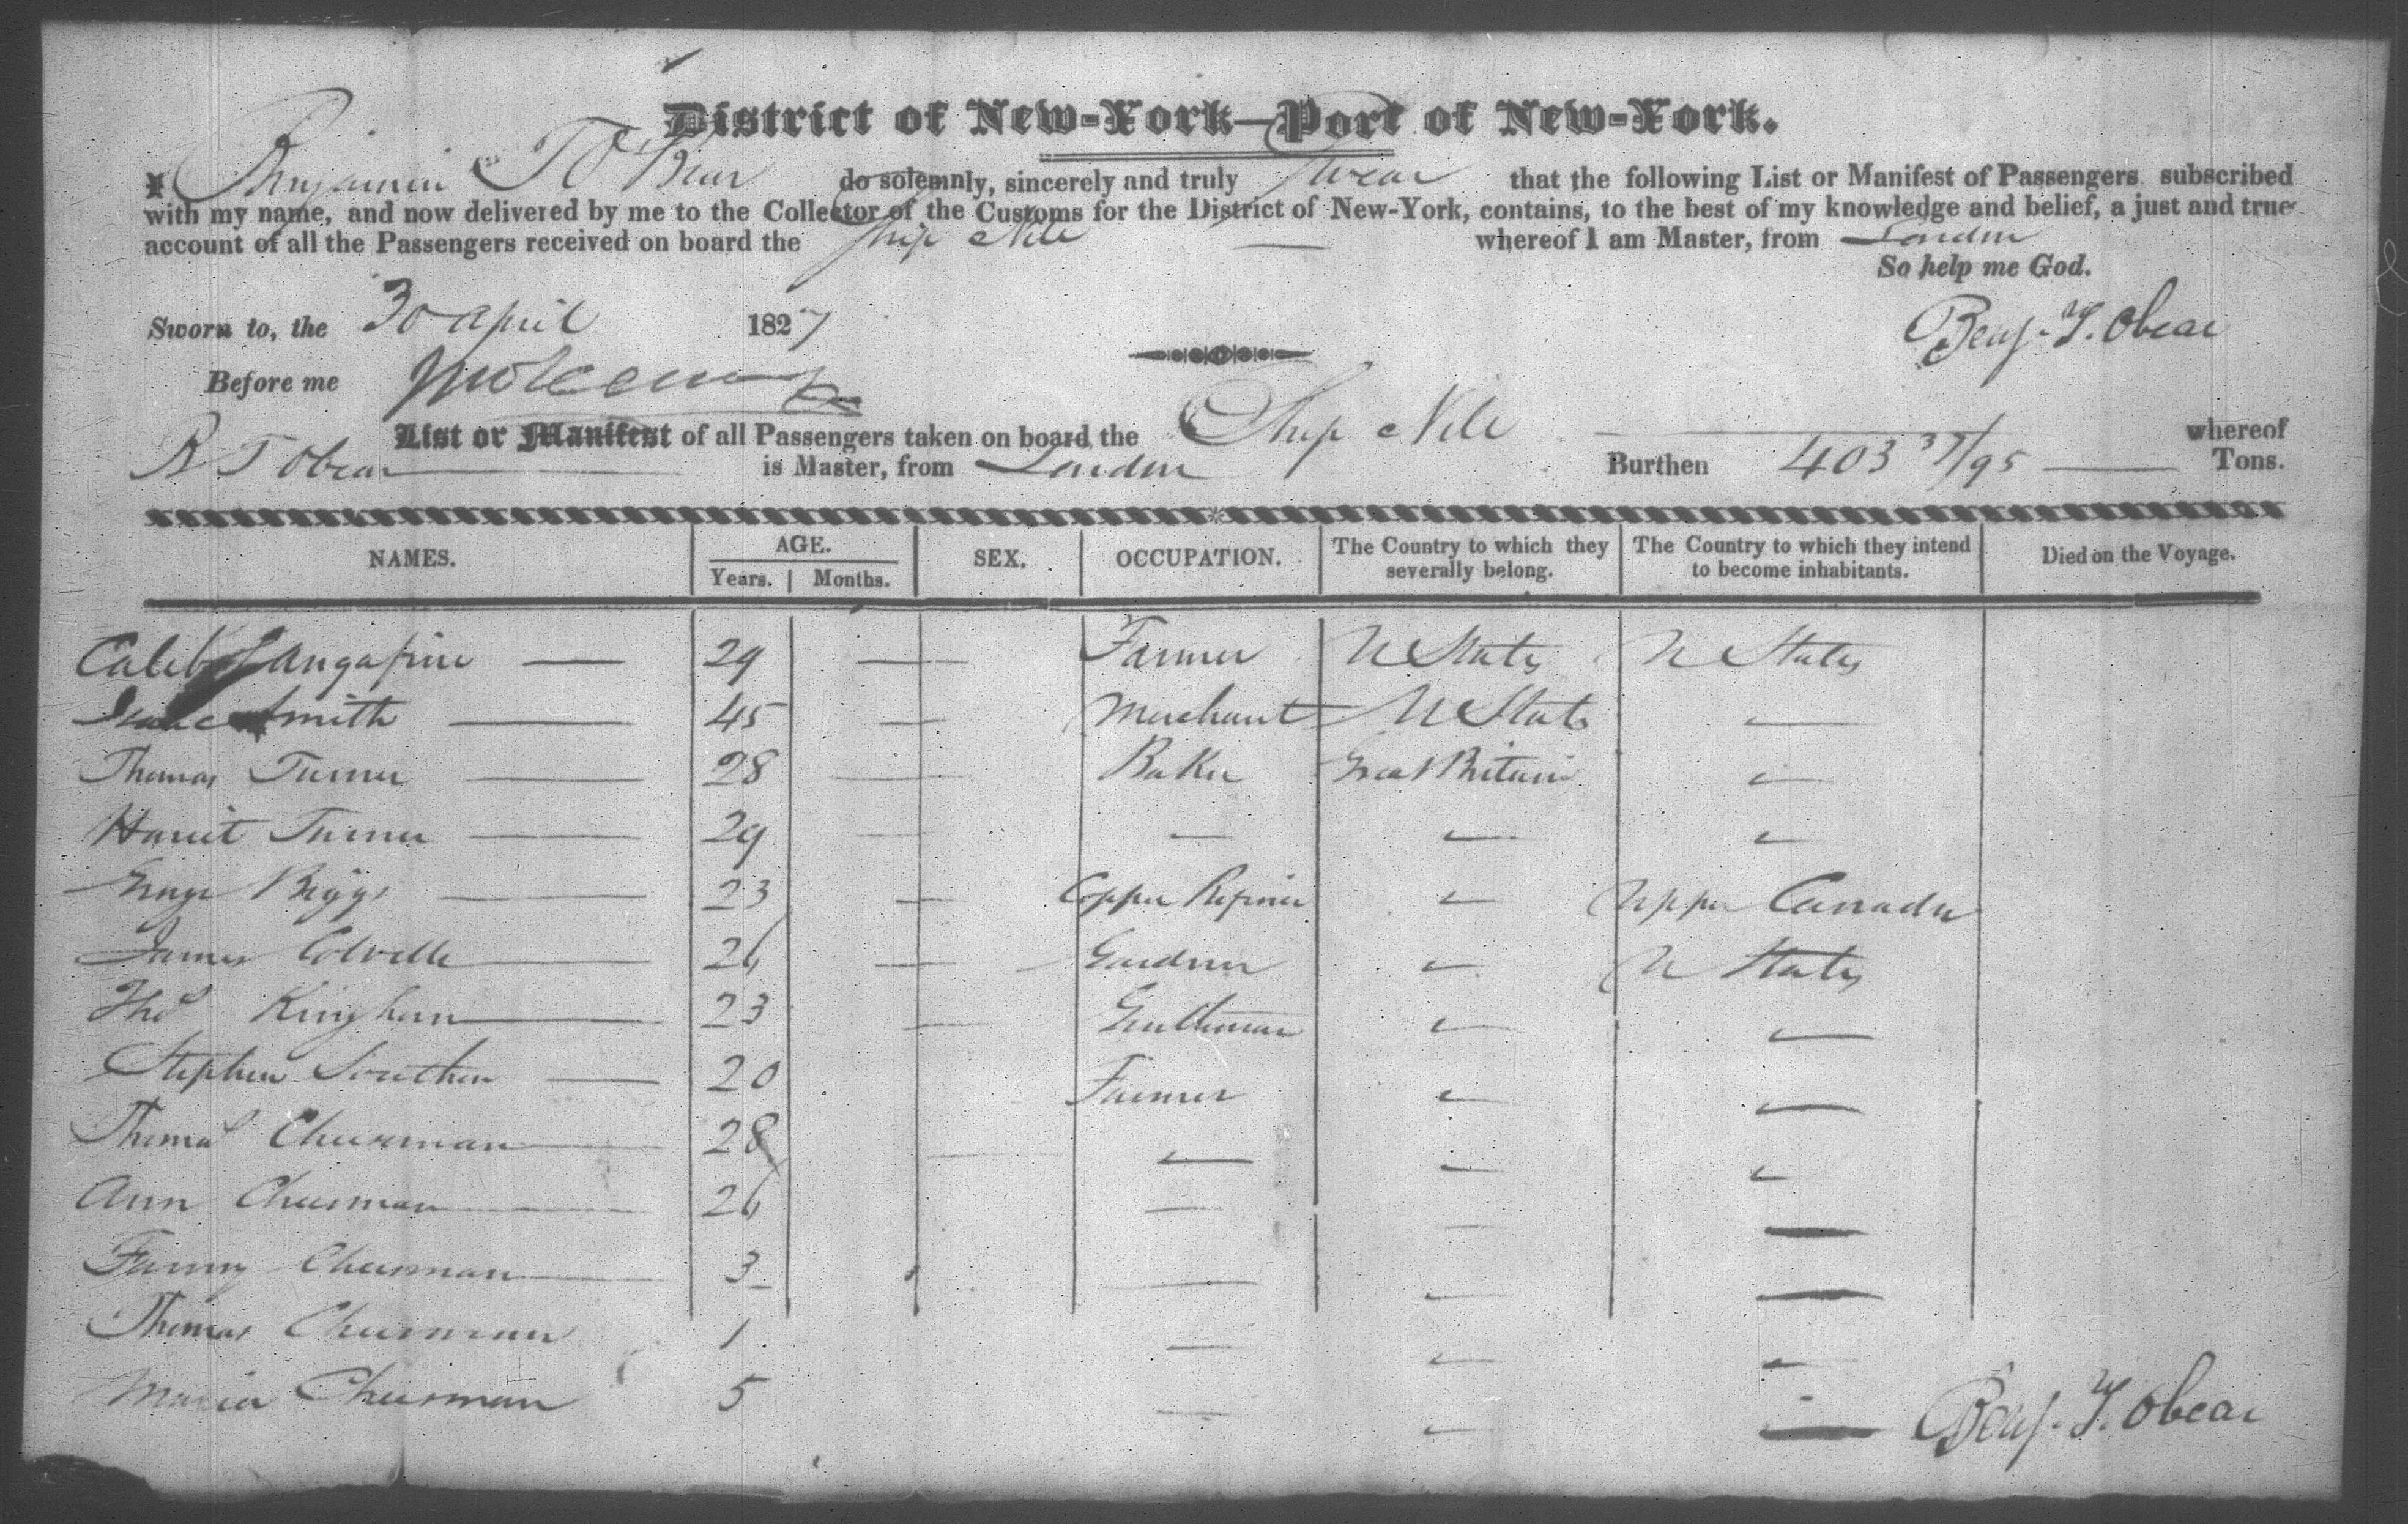 District of New-York—Port of New-York.
I Benjamin T O'Bear do solemnly, sincerely and truly swear that the following List or Manifest of Passengers subscribed
with my name, and now delivered by me to the Collector of the Customs for the District of New-York, contains, to the best of my knowledge and belief, a just and true
account of all the Passengers received on board the Ship Nile — whereof I am Master, from London
So help me God.
Sworn to, the 30 April 1827
Benj. T. Obear
Before me
List or Manifest of all Passengers taken on board the Ship Nile — whereof
B T Obear — is Master, from London Burthen 403 37/95 — Tons.
NAMES. AGE. Years. Months. SEX. OCCUPATION. The Country to which they severally belong. The Country to which they intend to become inhabitants. Died on the Voyage.
Caleb — 29 — Farmer U States U States
Isaac Smith — 45 — Merchant U States —
Thomas Turner — 28 — Baker Great Britain —
Harriet Turner — 29 — — — —
George Briggs — 23 — Copper Refiner — Upper Canada
James Colville — 26 — Gardner — U States
Thos Kingham — 23 — Gentleman — —
Stephen Southen — 20 Farmer — —
Thomas Cheesman — 28 — — — —
Ann Cheesman — 26 — — —
Fanny Cheesman — 3 — — —
Thomas Cheesman 1 — — —
Maria Cheesman 5 — — —
Benj. T. Obear